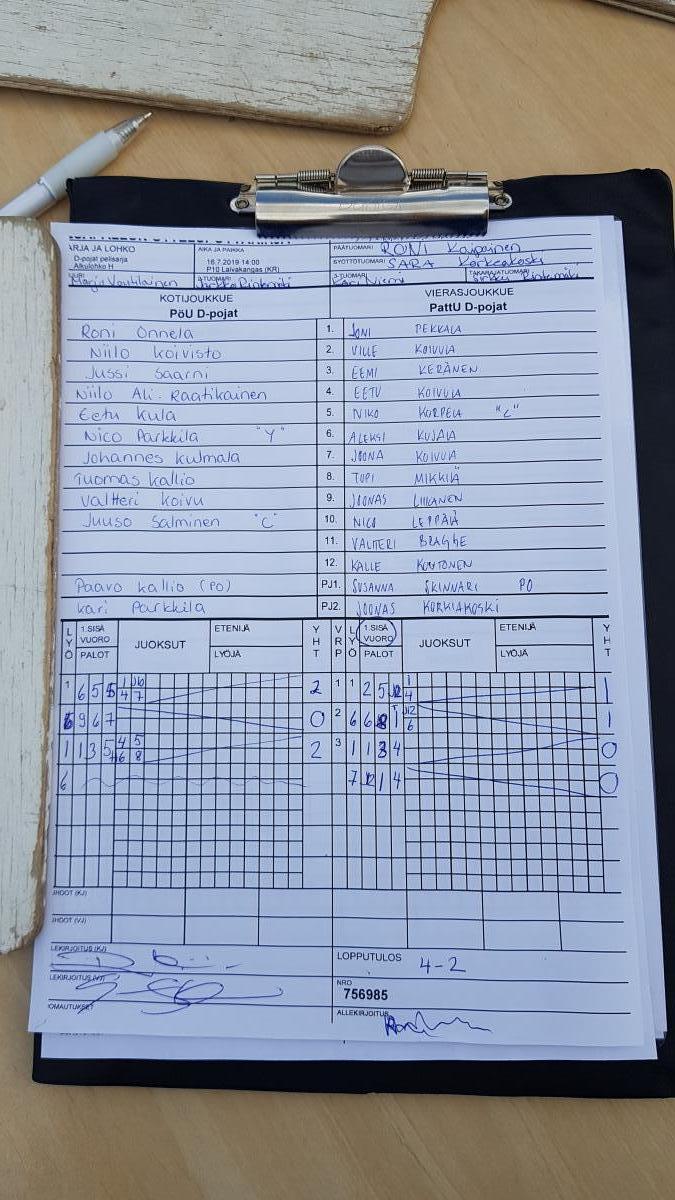 ARJA JA LOHKO
D-pojat pelisarja
Alkulohko H
AIKA JA PAIKKA
16.7.2019 14:00
P10 Laivakangas (KR)
PÄÄTUOMARI RONI Kaipainen
SYÖTTÖTUOMARI SARA Korkeakoski
Marju Voutilainen
2-TUOMARI Jarkko Rintamäki
3-TUOMARI Kari Niemi
TAKARAJATUOMARI Sirkku Rintamäki
KOTIJOUKKUE
PöU D-pojat
VIERASJOUKKUE
PattU D-pojat
Roni Onnela 1. JONI PEKKALA
Niilo Koivisto 2. VILLE KOIVULA
Jussi Saarni 3. EEMI KERÄNEN
Niilo Ali-Raatikainen 4. EETU KOIVULA
Eetu Kula 5. NIKO KORPELA "C"
Nico Parkkila "Y" 6. ALEKSI KUJALA
Johannes Kulmala 7. JOONA KOIVULA
Tuomas Kallio 8. TOPI MIKKILÄ
Valtteri Koivu 9. JOONAS LIIKANEN
Juuso Salminen "C" 10. NICO LEPPÄLÄ
11. VALTTERI BRAGGE
12. KALLE KONTONEN
Paavo Kallio (PO) PJ1. SUSANNA SKINNARI PO
Kari Parkkila PJ2. JOONAS KORKIAKOSKI
LYÖ 1.SISÄ VUORO PALOT JUOKSUT ETENIJÄ LYÖJÄ YHT VRP LYÖ 1.SISÄ VUORO PALOT JUOKSUT ETENIJÄ LYÖJÄ YHT
1 6 5 5 2 1 1 2 5 1
9 6 7 0 2 6 6 1 1
1 1 3 5 2 3 1 1 3 4 0
6 7 1 4 0
(KJ)
(VJ)
LEKIRJOITUS (KJ)
LOPPUTULOS 4-2
LEKIRJOITUS (VJ)
NRO
756985
OMAUTUKSET
ALLEKIRJOITUS